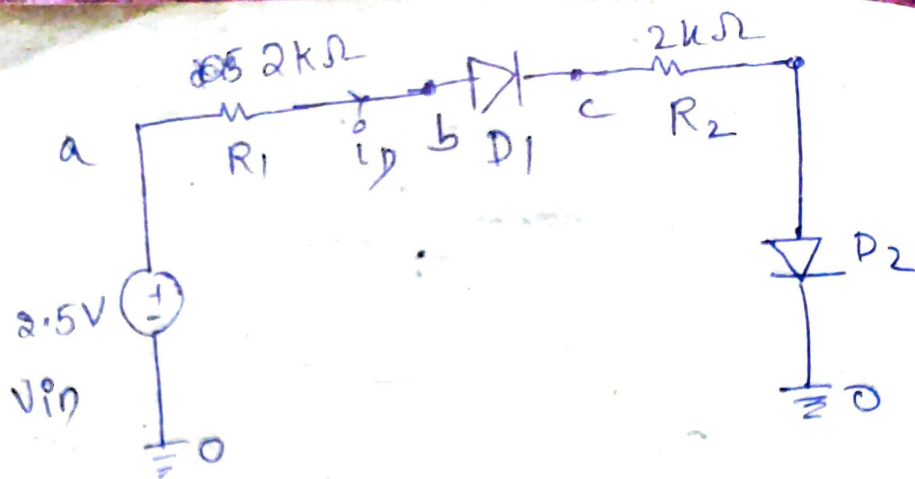 2kΩ
2kΩ
a
R1
iD
b
D1
c
R2
D2
2.5V
+
-
Vin
0
0